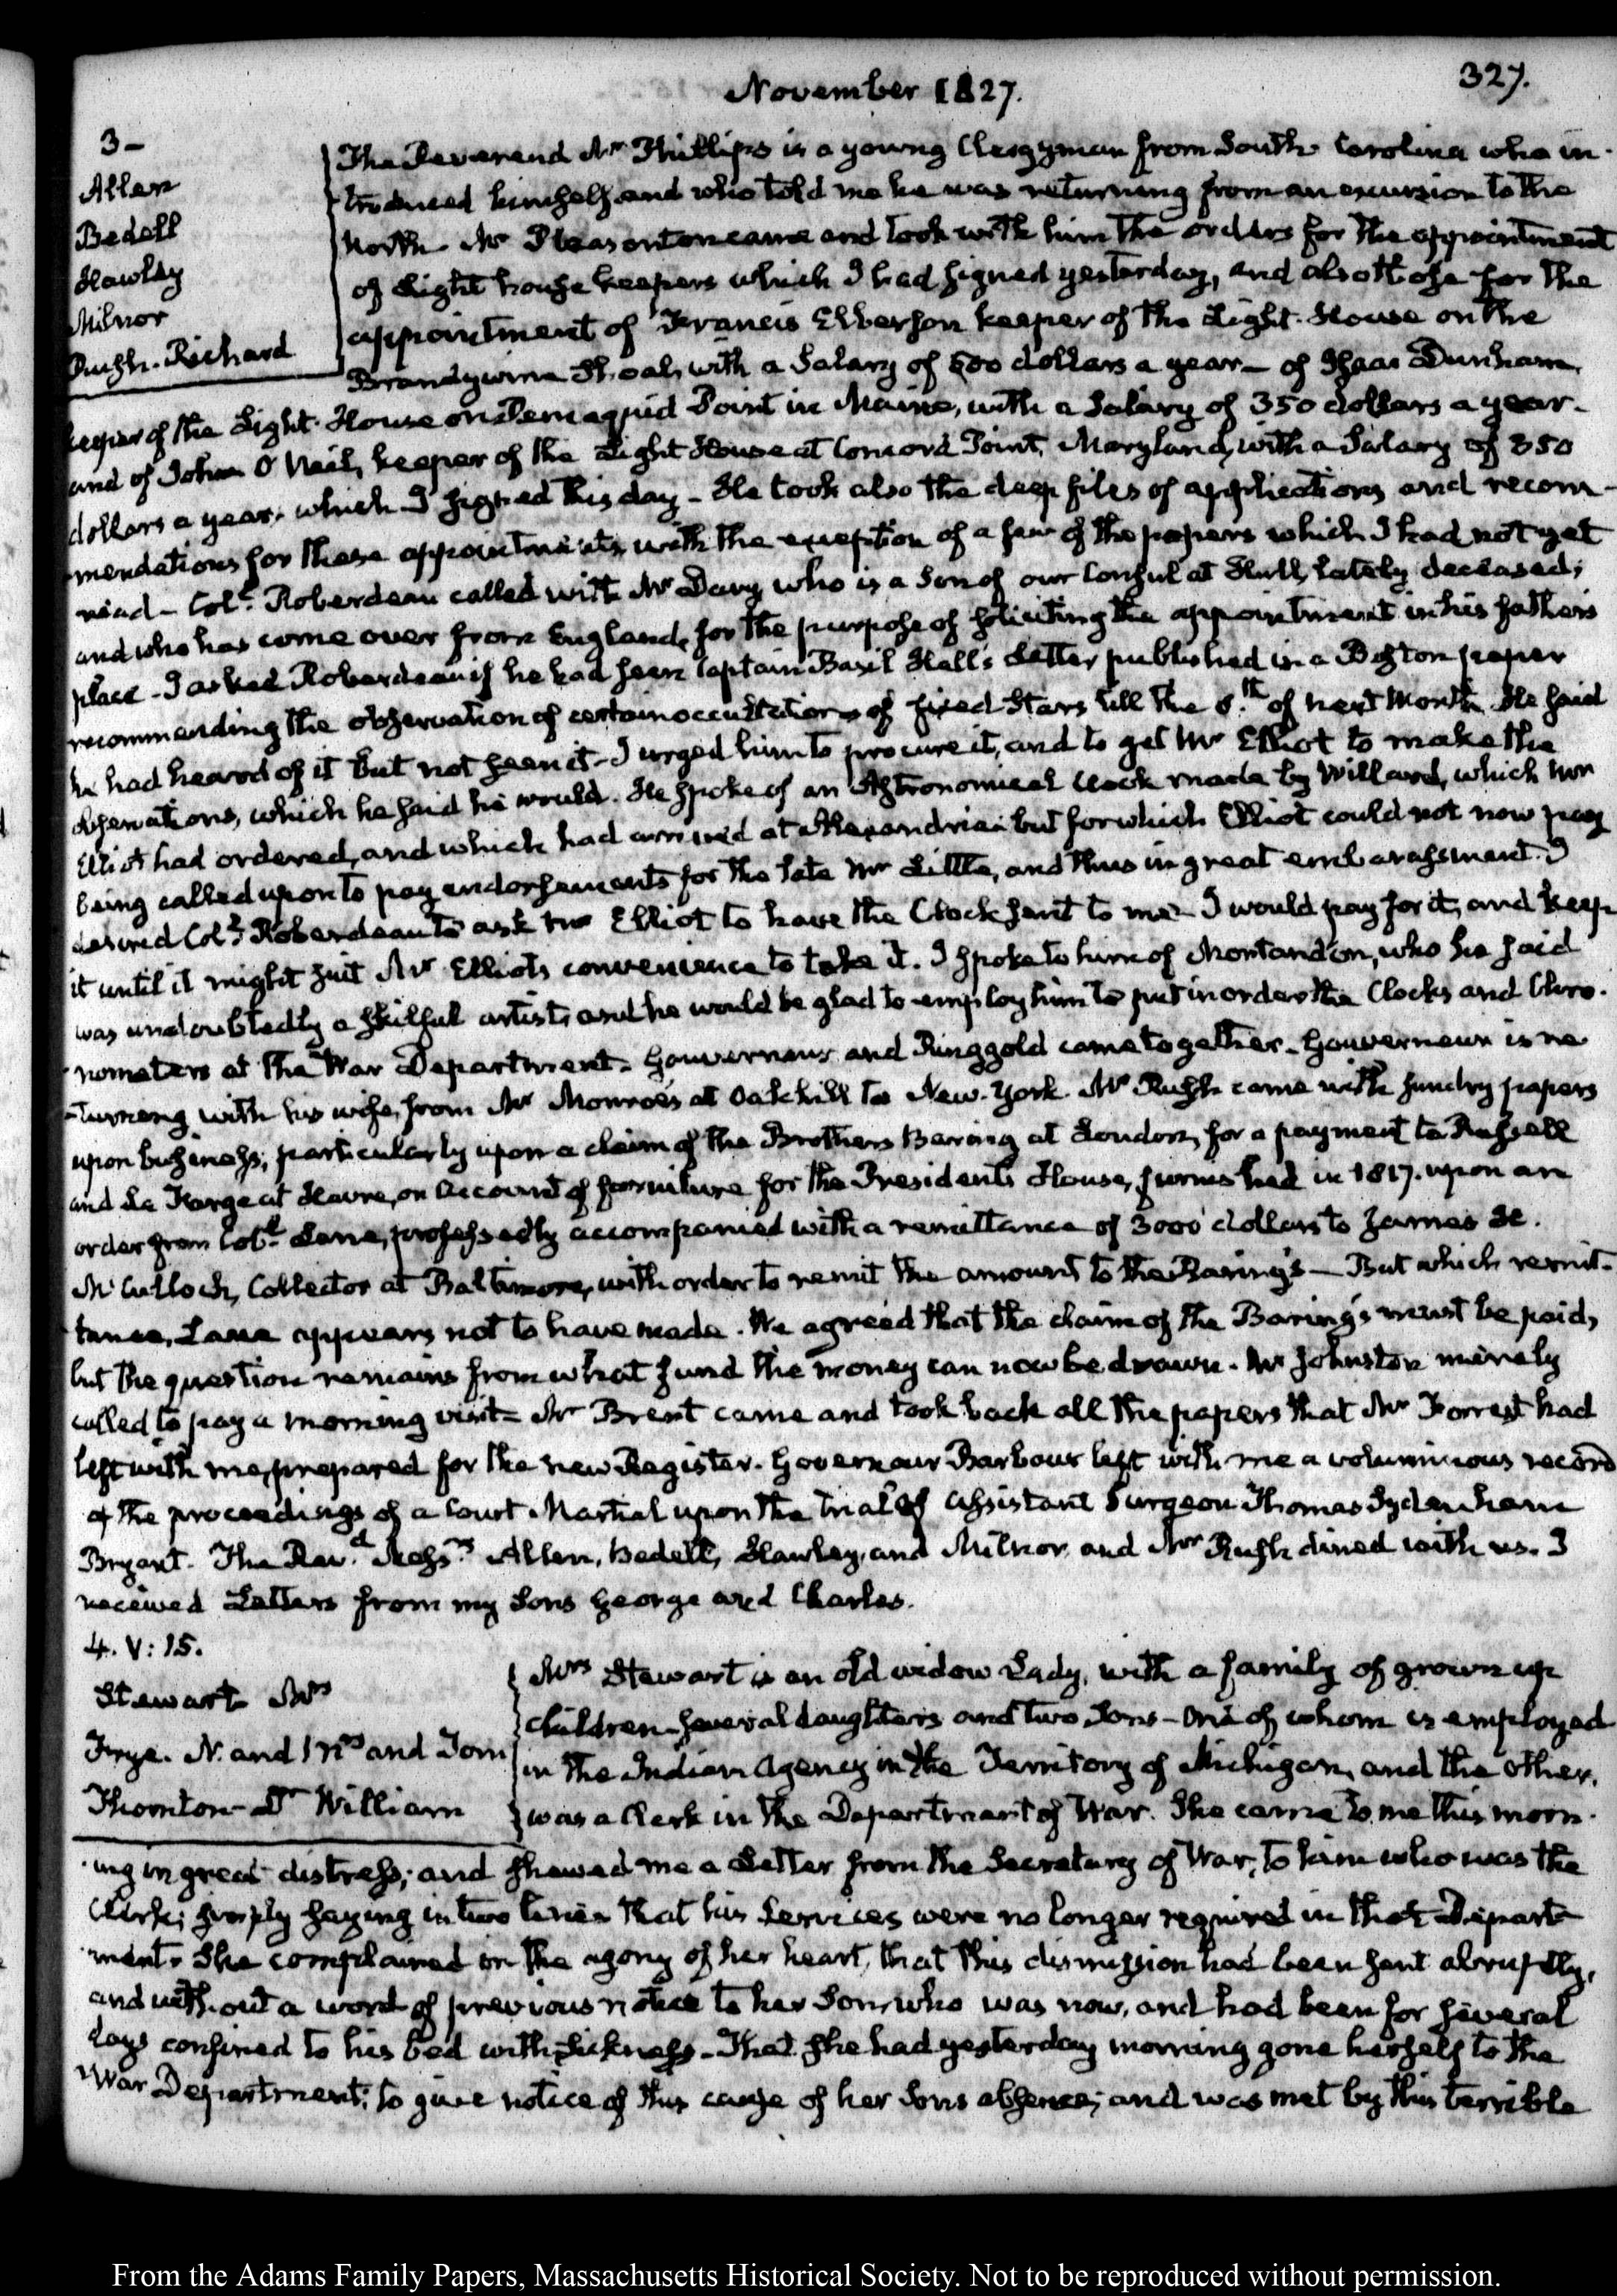 November 1827.
327.
3-
Allen
Bedell
Hawley
Milnor
Rush. Richard
The Reverend Mr Phillips is a young Clergyman from South Carolina who in-
troduced himself and who told me he was returning from an excursion to the
North. Mr Pleasonton came and took with him the orders for the appointment
of Light house keepers which I had signed yesterday, and also those for the
appointment of Francis Elberson keeper of the Light-House on the
Brandywine Shoal, with a Salary of 600 dollars a year- of Isaac Dunham,
keeper of the Light-House on Pemaquid Point in Maine, with a Salary of 350 dollars a year-
and of John O'Neil, keeper of the Light House at Concord Point, Maryland, with a Salary of 350
dollars a year, which I signed this day- He took also the deep files of applications and recom-
mendations for these appointments, with the exception of a few of the papers which I had not yet
read- Coll. Roberdeau called with Mr Davy who is a Son of our Consul at Hull, lately deceased;
and who has come over from England, for the purpose of soliciting the appointment in his father's
place- I asked Roberdeau if he had seen Captain Basil Hall's Letter published in a Boston paper
recommending the observation of certain occultations of fixed Stars till the 8.th of next Month. He said
he had heard of it but not seen it- I urged him to procure it, and to get Mr Elliot to make the
observations, which he said he would. He spoke of an Astronomical Clock made by Willard, which Mr
Elliot had ordered, and which had arrived at Alexandria: but for which Elliot could not now pay
being called upon to pay endorsements for the late Mr Little, and thus in great embarassment. I
desired Coll. Roberdeau to ask Mr Elliot to have the Clock sent to me- I would pay for it, and keep
it until it might suit Mr Elliot's convenience to take it. I spoke to him of Montandon, who he said
was undoubtedly a skilful artist; and he would be glad to employ him to put in order the Clocks and Chro-
nometers at the War Department- Gouverneur and Ringgold came together- Gouverneur is re-
turning with his wife, from Mr Monroe's at Oakhill to New-York. Mr Rush came with sundry papers
upon business; particularly upon a claim of the Brothers Baring at London, for a payment to Russell
and La Farge at Havre, on account of furniture for the Presidents House, furnished in 1817. upon an
order from Coll. Lane, professedly accompanied with a remittance of 3000 dollars to James H.
McCulloch, Collector at Baltimore, with order to remit the amount to the Barings- But which remit-
tance, Lane appears not to have made. We agreed that the claim of the Baring's must be paid,
but the question remains from what fund the money can now be drawn. Mr Johnston merely
called to pay a morning visit- Mr Brent came and took back all the papers that Mr Forrest had
left with me, prepared for the new Register. Governour Barbour left with me a voluminous record
of the proceedings of a Court-Martial upon the trial of Assistant Surgeon Thomas Sydenham
Bryant. The Rev.d Mess.rs Allen, Bedell, Hawley, and Milnor and Mr Rush dined with us. I
received Letters from my Sons George and Charles.
4. V: 15.
Stewart Mrs
Frye. N. and Mrs and Tom
Thornton- Dr William
Mrs Stewart is an old widow Lady, with a family of grown up
children- several daughters and two Sons- One of whom is employed
in the Indian Agency in the Territory of Michigan, and the other,
was a Clerk in the Department of War. She came to me this morn-
ing in great distress; and shewed me a Letter from the Secretary of War, to him who was the
Clerk; simply saying in two lines that his Services were no longer required in that Depart-
ment. She complained in the agony of her heart, that this dismission had been sent abruptly,
and without a word of previous notice to her Son, who was now, and had been for several
days confined to his bed with sickness- That she had yesterday morning gone herself to the
War Department; to give notice of this cause of her Sons absence; and was met by this terrible
From the Adams Family Papers, Massachusetts Historical Society. Not to be reproduced without permission.